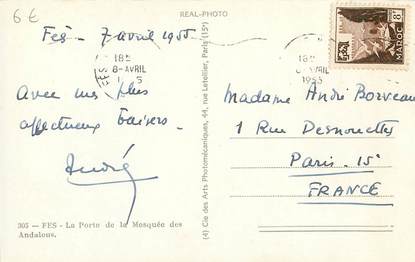 6 €
REAL-PHOTO
Fès - 7 avril 1955
18h
8-AVRIL
Avec mes plus
affectueux baisers.
André
305 — FES - La Porte de la Mosquée des
Andalous.
(4) Cie des Arts Photomécaniques, 44, rue Letellier, Paris (15e)
MAROC 8F
18h
AVRIL
1955
Madame André Borveau
1 Rue Desnouettes
Paris. 15e
FRANCE